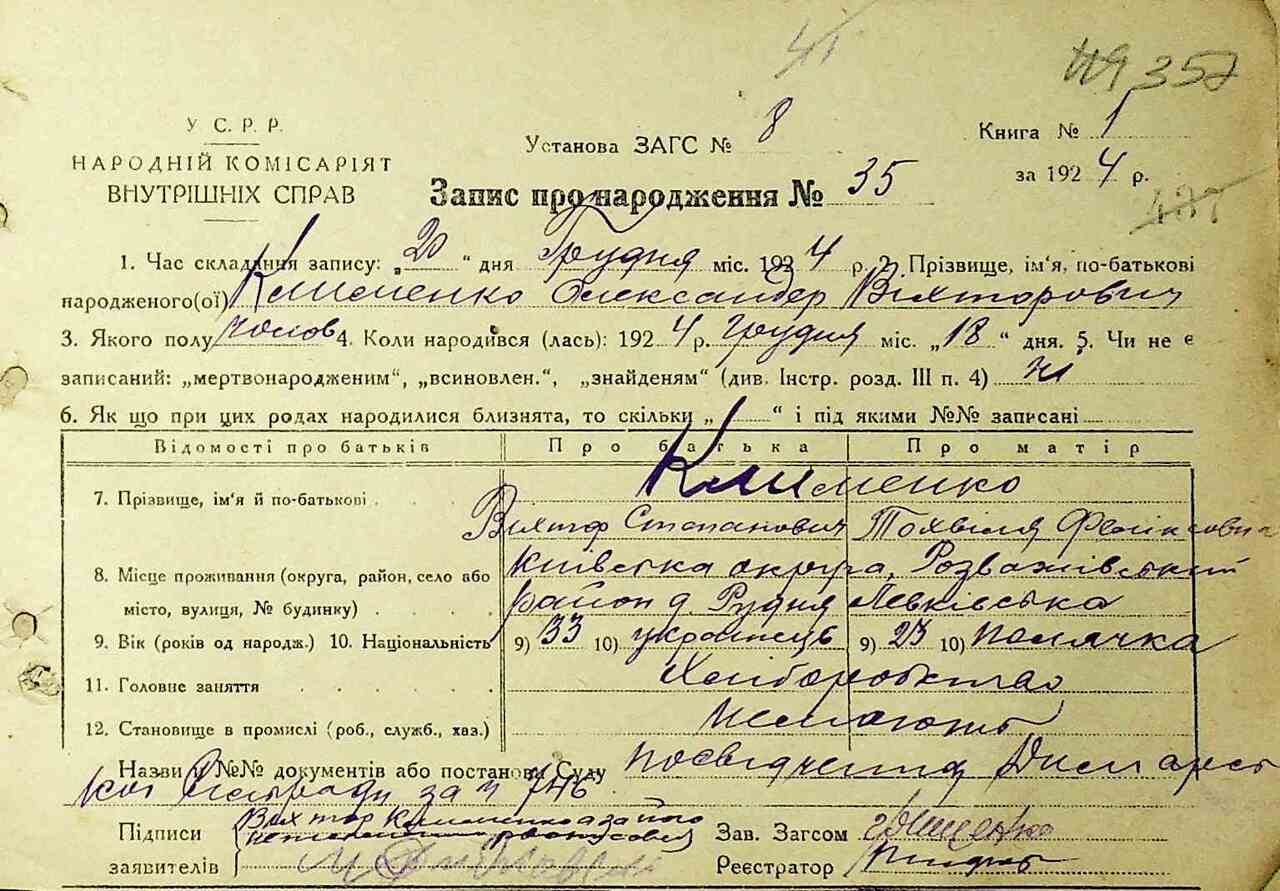 119 352
У С. Р. Р.
НАРОДНІЙ КОМІСАРІЯТ
ВНУТРІШНІХ СПРАВ
Установа ЗАГС № 8
Книга № 1
за 1924 р.
Запис про народження № 35
1. Час складання запису: „20“ дня Грудня міс. 1924 р. 2. Прізвище, ім'я, по-батькові
народженого(ої) Клименко Олександер Віхторович
3. Якого полу чолов 4. Коли народився (лась): 1924 р. грудня міс. „18“ дня. 5. Чи не є
записаний: „мертвонародженим“, „всиновлен.“, „знайденям“ (див. Інстр. розд. III п. 4) ні
6. Як що при цих родах народилися близнята, то скільки „ “ і під якими №№ записані
Відомості про батьків Про батька Про матір
7. Прізвище, ім'я й по-батькові Клименко
Віхтор Степанович Тохвіля Феліксовна
8. Місце проживання (округа, район, село або Київська округа, Розважівський
місто, вулиця, № будинку) район д. Рудня Левківська
9. Вік (років од народж.) 10. Національність 9) 33 10) українець 9) 23 10) полячка
11. Головне заняття Хліборобство
12. Становище в промислі (роб., служб., хаз.)
Назви й №№ документів або постанови Суду посвідчення
кої Сільради за ч 746
Підписи Віхтор Клименко а за його
заявителів
Зав. Загсом
Реєстратор